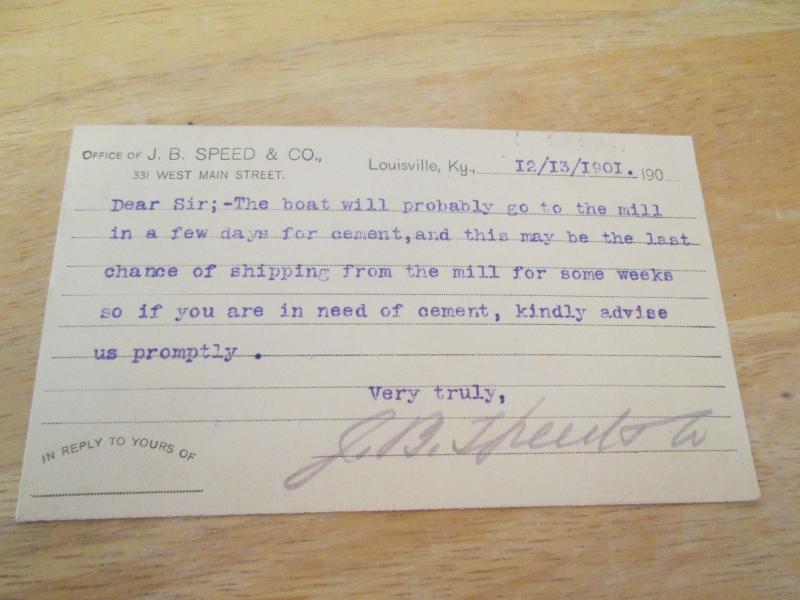 OFFICE OF J. B. SPEED & CO.,
331 WEST MAIN STREET.
Louisville, Ky., 12/13/1901. 190
Dear Sir;-The boat will probably go to the mill
in a few days for cement,and this may be the last
chance of shipping from the mill for some weeks
so if you are in need of cement, kindly advise
us promptly .
Very truly,
J. B. Speed & Co
IN REPLY TO YOURS OF